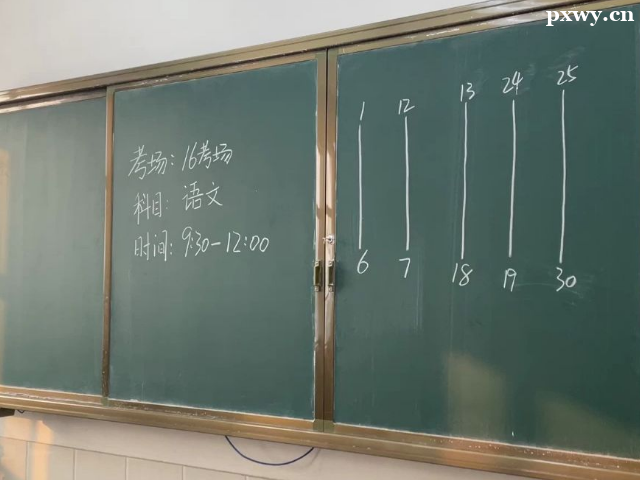 pxwy.cn
考场：16考场
科目：语文
时间：9:30-12:00
1 12 13 24 25
6 7 18 19 30